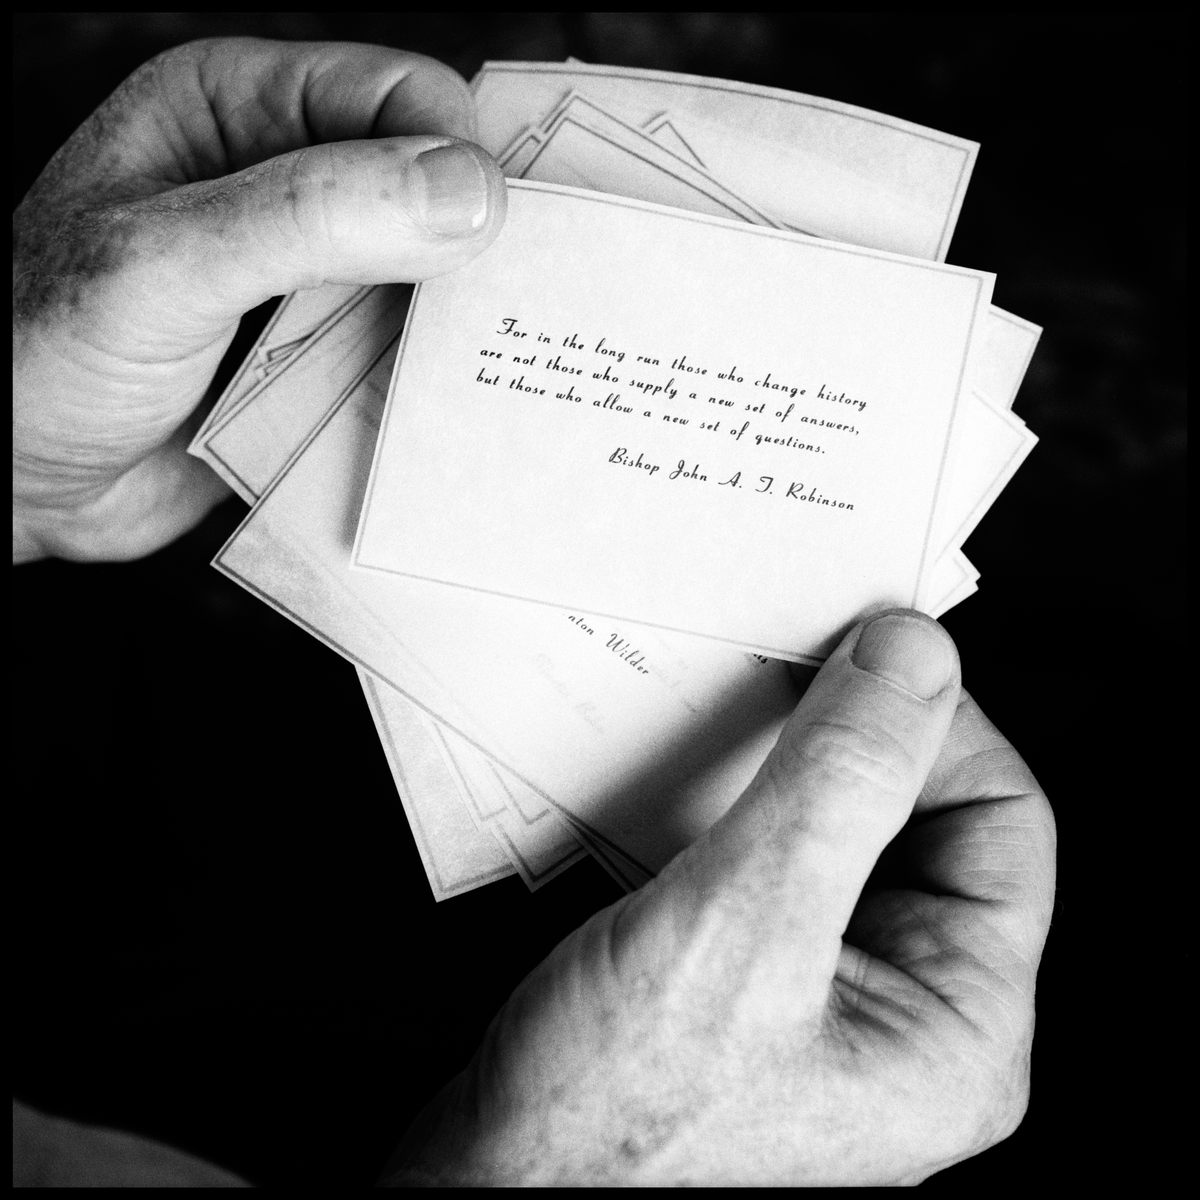 For in the long run those who change history
are not those who supply a new set of answers,
but those who allow a new set of questions.
Bishop John A. T. Robinson
nton Wilder
ts